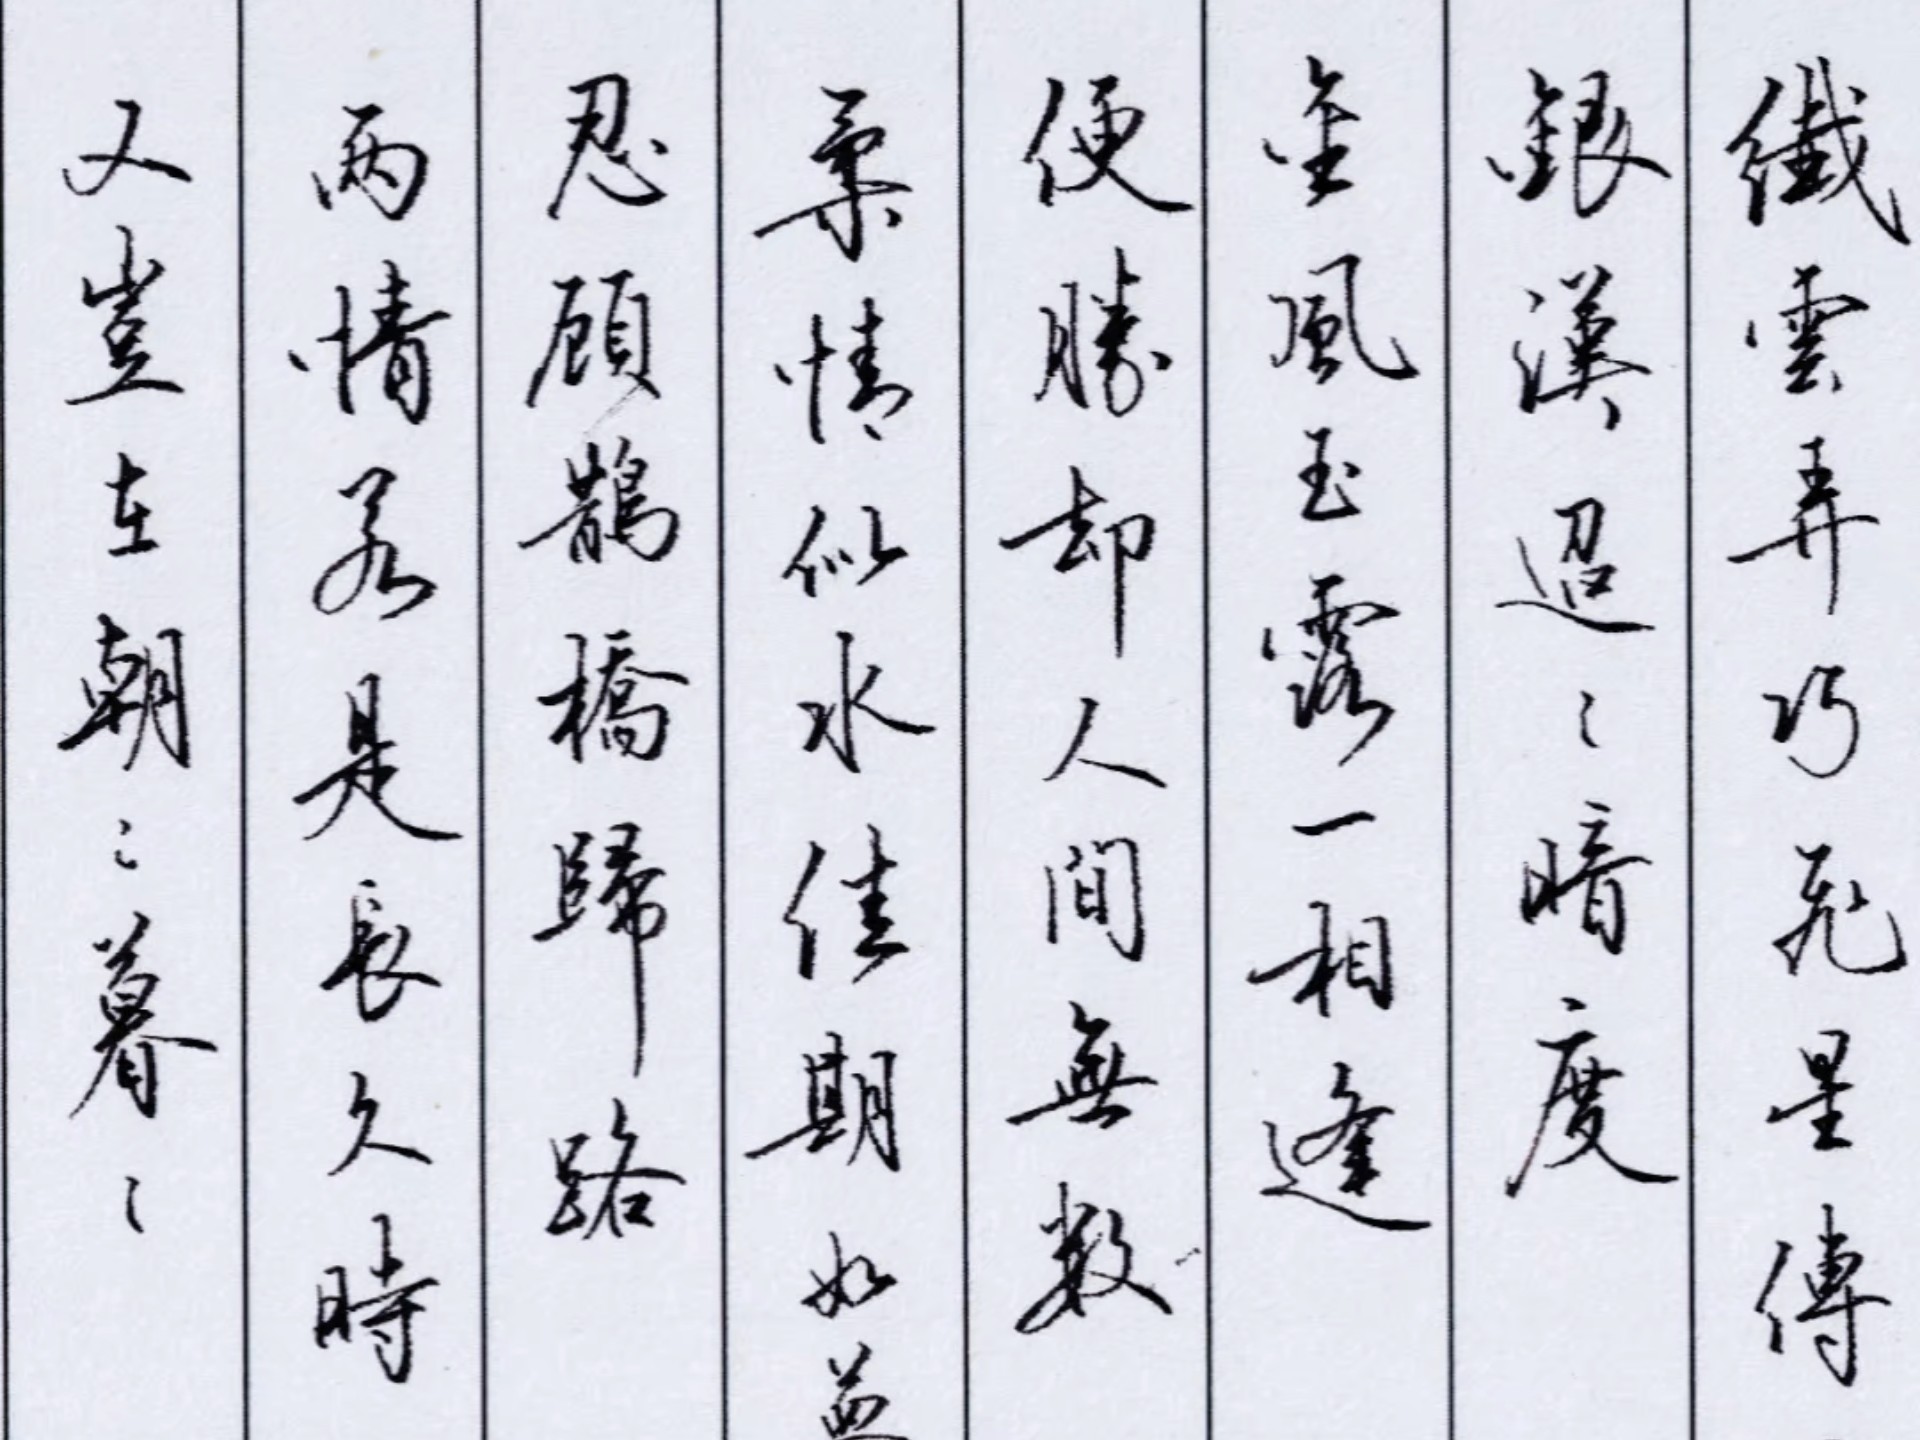 纖雲弄巧飛星傳
銀漢迢〻暗度
金風玉露一相逢
便勝却人間無數
柔情似水佳期如夢
忍顧鵲橋歸路
兩情若是長久時
又豈在朝〻暮〻